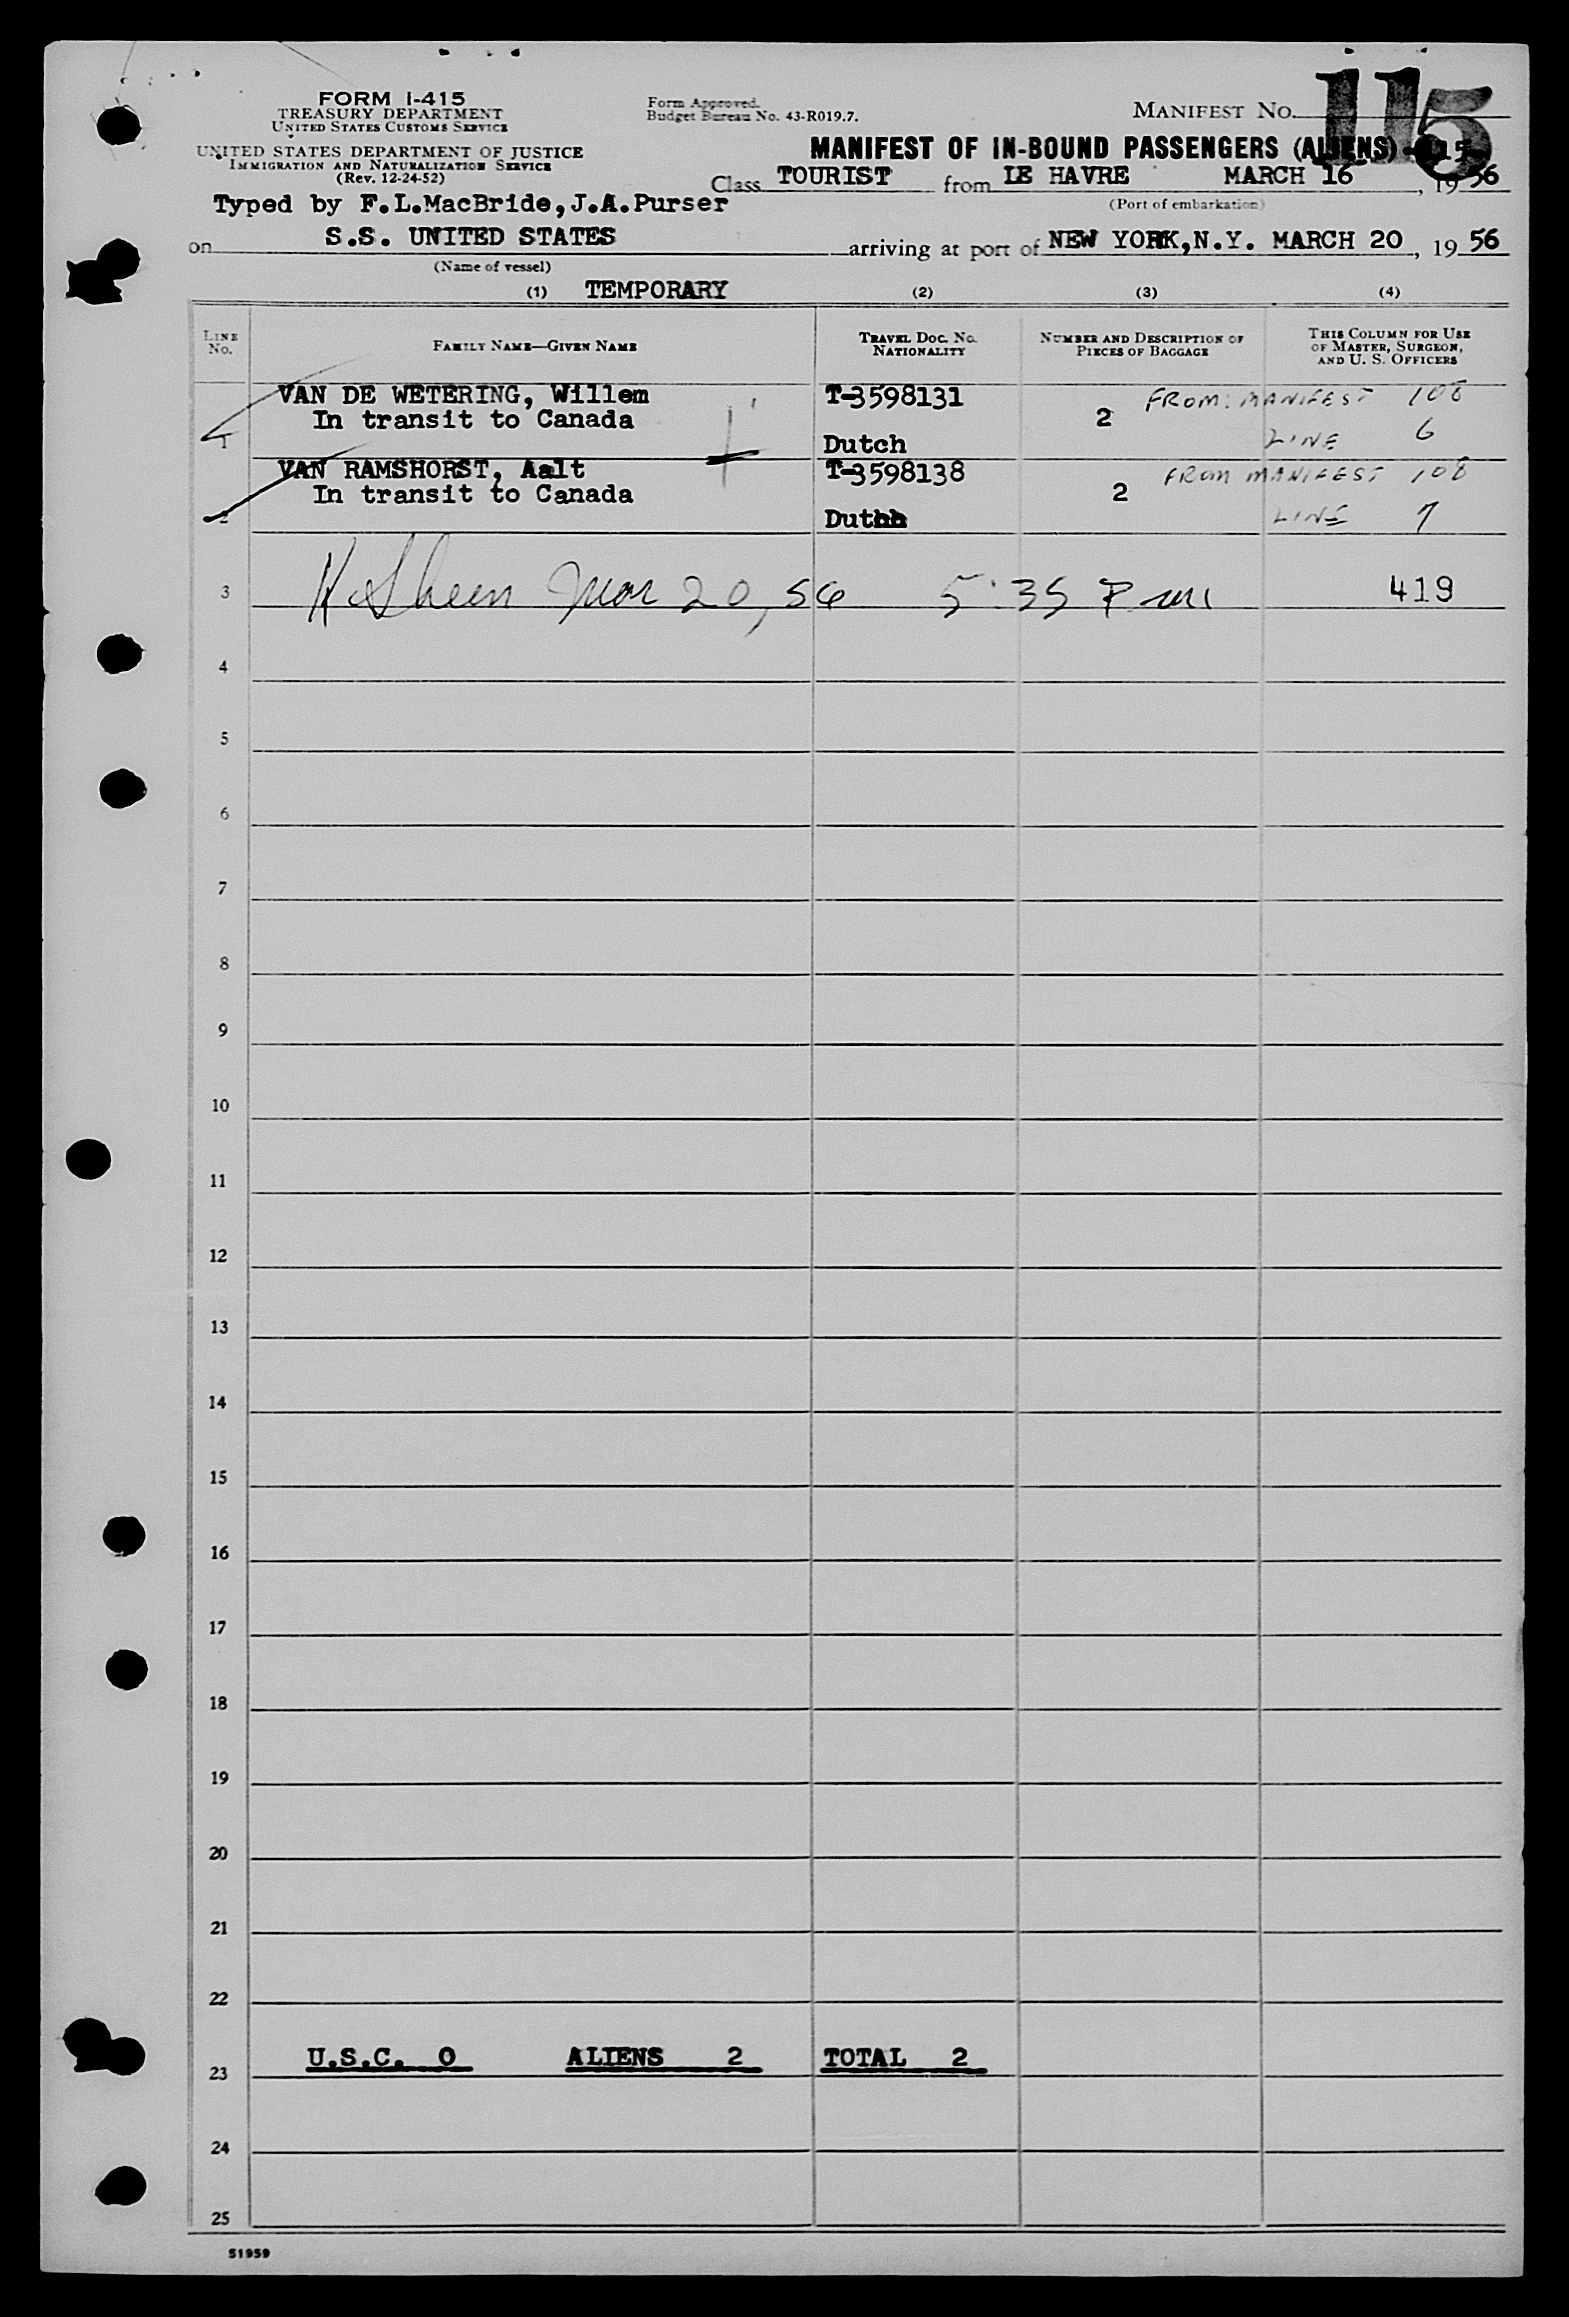 FORM I-415
TREASURY DEPARTMENT
UNITED STATES CUSTOMS SERVICE
UNITED STATES DEPARTMENT OF JUSTICE
IMMIGRATION AND NATURALIZATION SERVICE
(Rev. 12-24-52)
Form Approved.
Budget Bureau No. 43-R019.7.
MANIFEST NO. 115
MANIFEST OF IN-BOUND PASSENGERS (ALIENS)
Class TOURIST from LE HAVRE MARCH 16, 1956
(Port of embarkation)
Typed by F.L.MacBride,J.A.Purser
on S.S. UNITED STATES arriving at port of NEW YORK,N.Y. MARCH 20, 19 56
(Name of vessel)
(1) TEMPORARY (2) (3) (4)
LINE NO. FAMILY NAME—GIVEN NAME TRAVEL DOC. NO. NATIONALITY NUMBER AND DESCRIPTION OF PIECES OF BAGGAGE THIS COLUMN FOR USE OF MASTER, SURGEON, AND U. S. OFFICERS
VAN DE WETERING, Willem T-3598131 FROM: MANIFEST 108
In transit to Canada 2
1 Dutch LINE 6
VAN RAMSHORST, Aalt T-3598138 FROM MANIFEST 108
In transit to Canada 2
2 Dutch LINE 7
3 Mar 20, 56 5:35 Pm 419
4
5
6
7
8
9
10
11
12
13
14
15
16
17
18
19
20
21
22
23 U.S.C. 0 ALIENS 2 TOTAL 2
24
25
51959